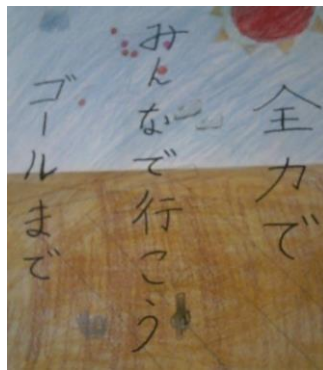 全力で
みんなで行こう
ゴールまで